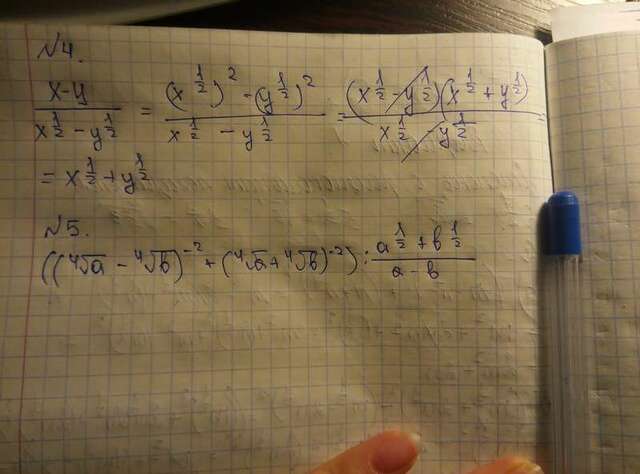 №4.
(x-y)/(x^(1/2) - y^(1/2)) = ((x^(1/2))^2 - (y^(1/2))^2)/(x^(1/2) - y^(1/2)) = ((x^(1/2) - y^(1/2))(x^(1/2) + y^(1/2)))/(x^(1/2) - y^(1/2)) =
= x^(1/2) + y^(1/2)
№5.
((⁴√a - ⁴√b)^(-2) + (⁴√a + ⁴√b)^(-2)) : (a^(1/2) + b^(1/2))/(a - b)